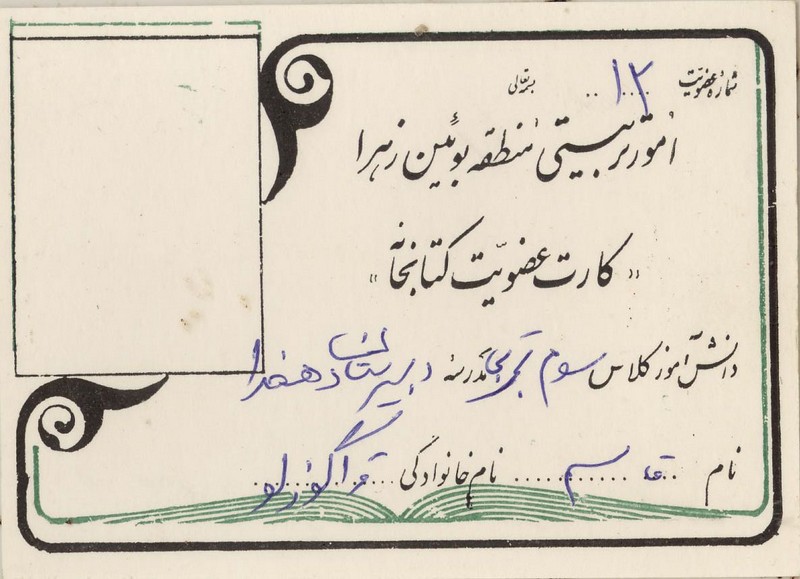 شماره عضویت ۱۲ بسمه تعالی
امور تربیتی منطقه بوئین زهرا
«کارت عضویت کتابخانه»
دانش آموز کلاس سوم تجربی مدرسه دبیرستان دهخدا
نام قاسم نام خانوادگی قراگوزلو